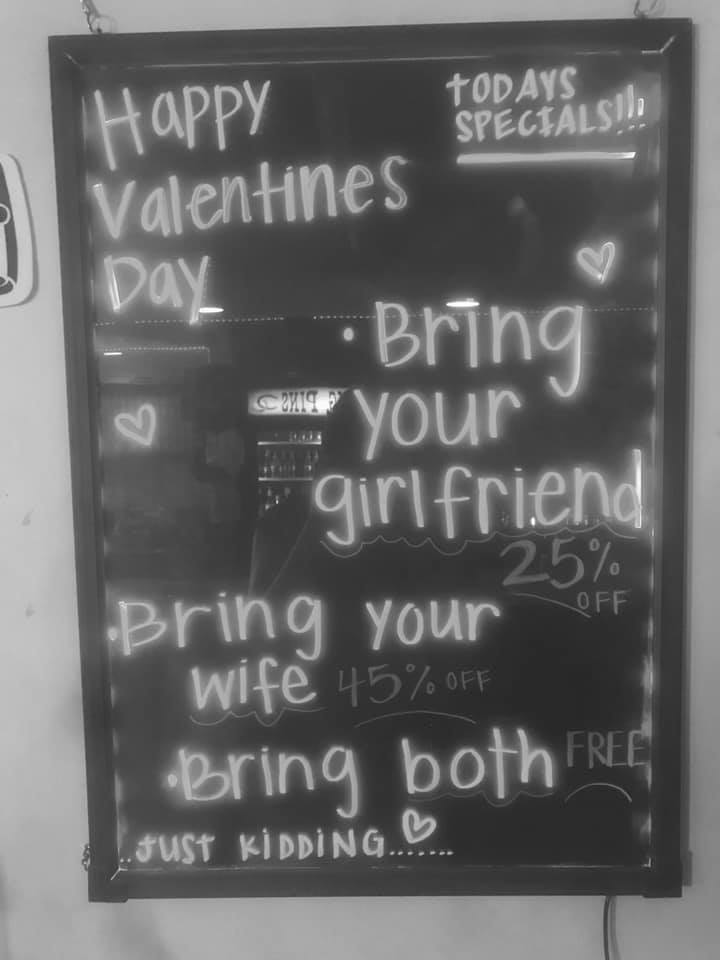 Happy
Valentines
Day
TODAYS
SPECIALS!!!
• Bring
your
girlfriend
25%
OFF
• Bring your
wife 45% OFF
• Bring both FREE
..JUST KIDDING.......